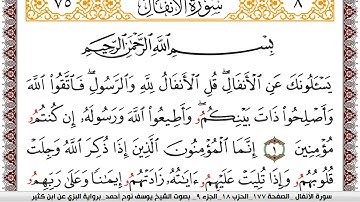 ٧٥ سُورَةُ الأَنفَالِ ٨
بِسْمِ اللَّهِ الرَّحْمَٰنِ الرَّحِيمِ
يَسْـَٔلُونَكَ عَنِ الْأَنفَالِ ۖ قُلِ الْأَنفَالُ لِلَّهِ وَالرَّسُولِ ۖ فَاتَّقُوا اللَّهَ
وَأَصْلِحُوا ذَاتَ بَيْنِكُمُۥ ۖ وَأَطِيعُوا اللَّهَ وَرَسُولَهُۥ إِن كُنتُمُۥ
مُؤْمِنِينَ ١ إِنَّمَا الْمُؤْمِنُونَ الَّذِينَ إِذَا ذُكِرَ اللَّهُ وَجِلَتْ
قُلُوبُهُمُۥ وَإِذَا تُلِيَتْ عَلَيْهِمُۥ ءَايَٰتُهُۥ زَادَتْهُمُۥ إِيمَٰنًا وَعَلَىٰ رَبِّهِمُۥ
سورة الأنفال الصفحة ١٧٧ الحزب ١٨ الجزء ٩ بصوت الشيخ يوسف نوح أحمد برواية البزي عن ابن كثير